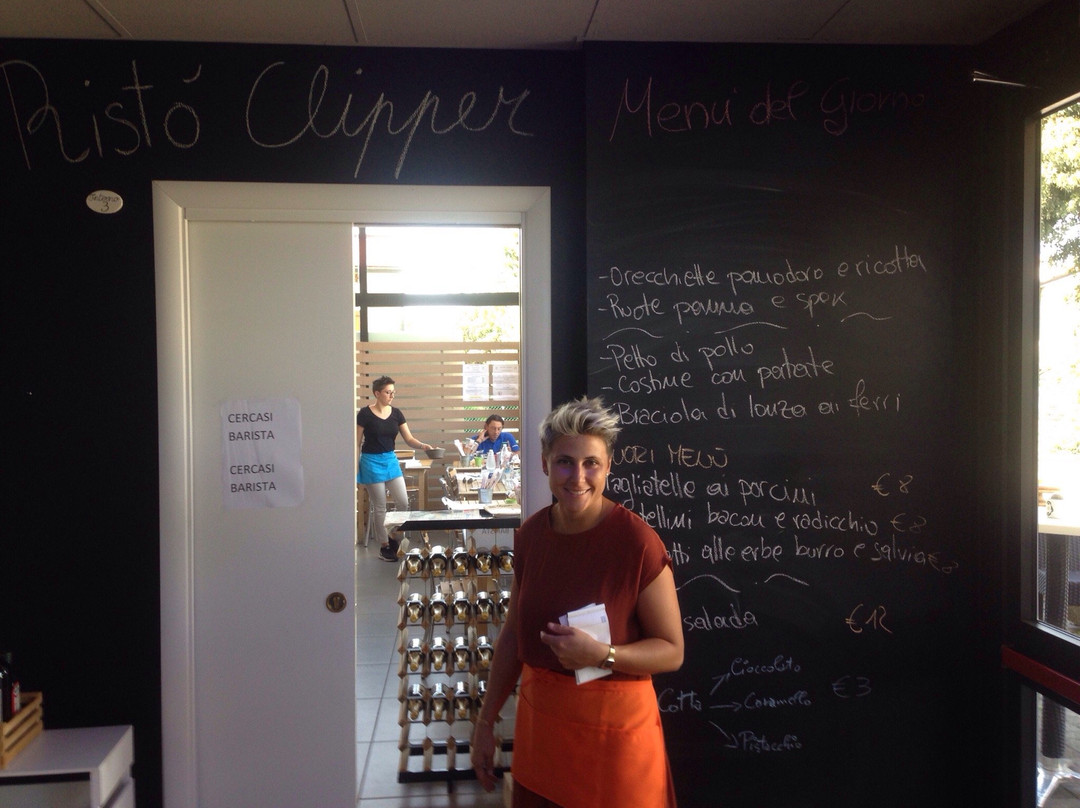 Ristó Clipper
Menù del Giorno
- Orecchiette pomodoro e ricotta
- Ruote panna e spek
- Petto di pollo
- Costine con patate
Braciola di lonza ai ferri
UORI MENÙ
agliatelle ai porcini €8
tellini bacon e radicchio €8
tti alle erbe burro e salvia €8
salada €12
Cotta
Cioccolato
Caramello €3
Pistacchio
CERCASI
BARISTA
CERCASI
BARISTA